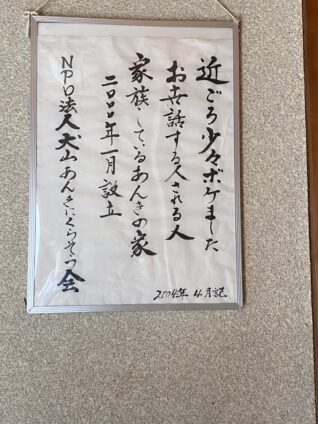 近ごろ少々ボケました
お世話する人される人
家族しているあんきの家
二〇〇〇年一月設立
NPO法人犬山あんきにくらそう会
2004年 4月記